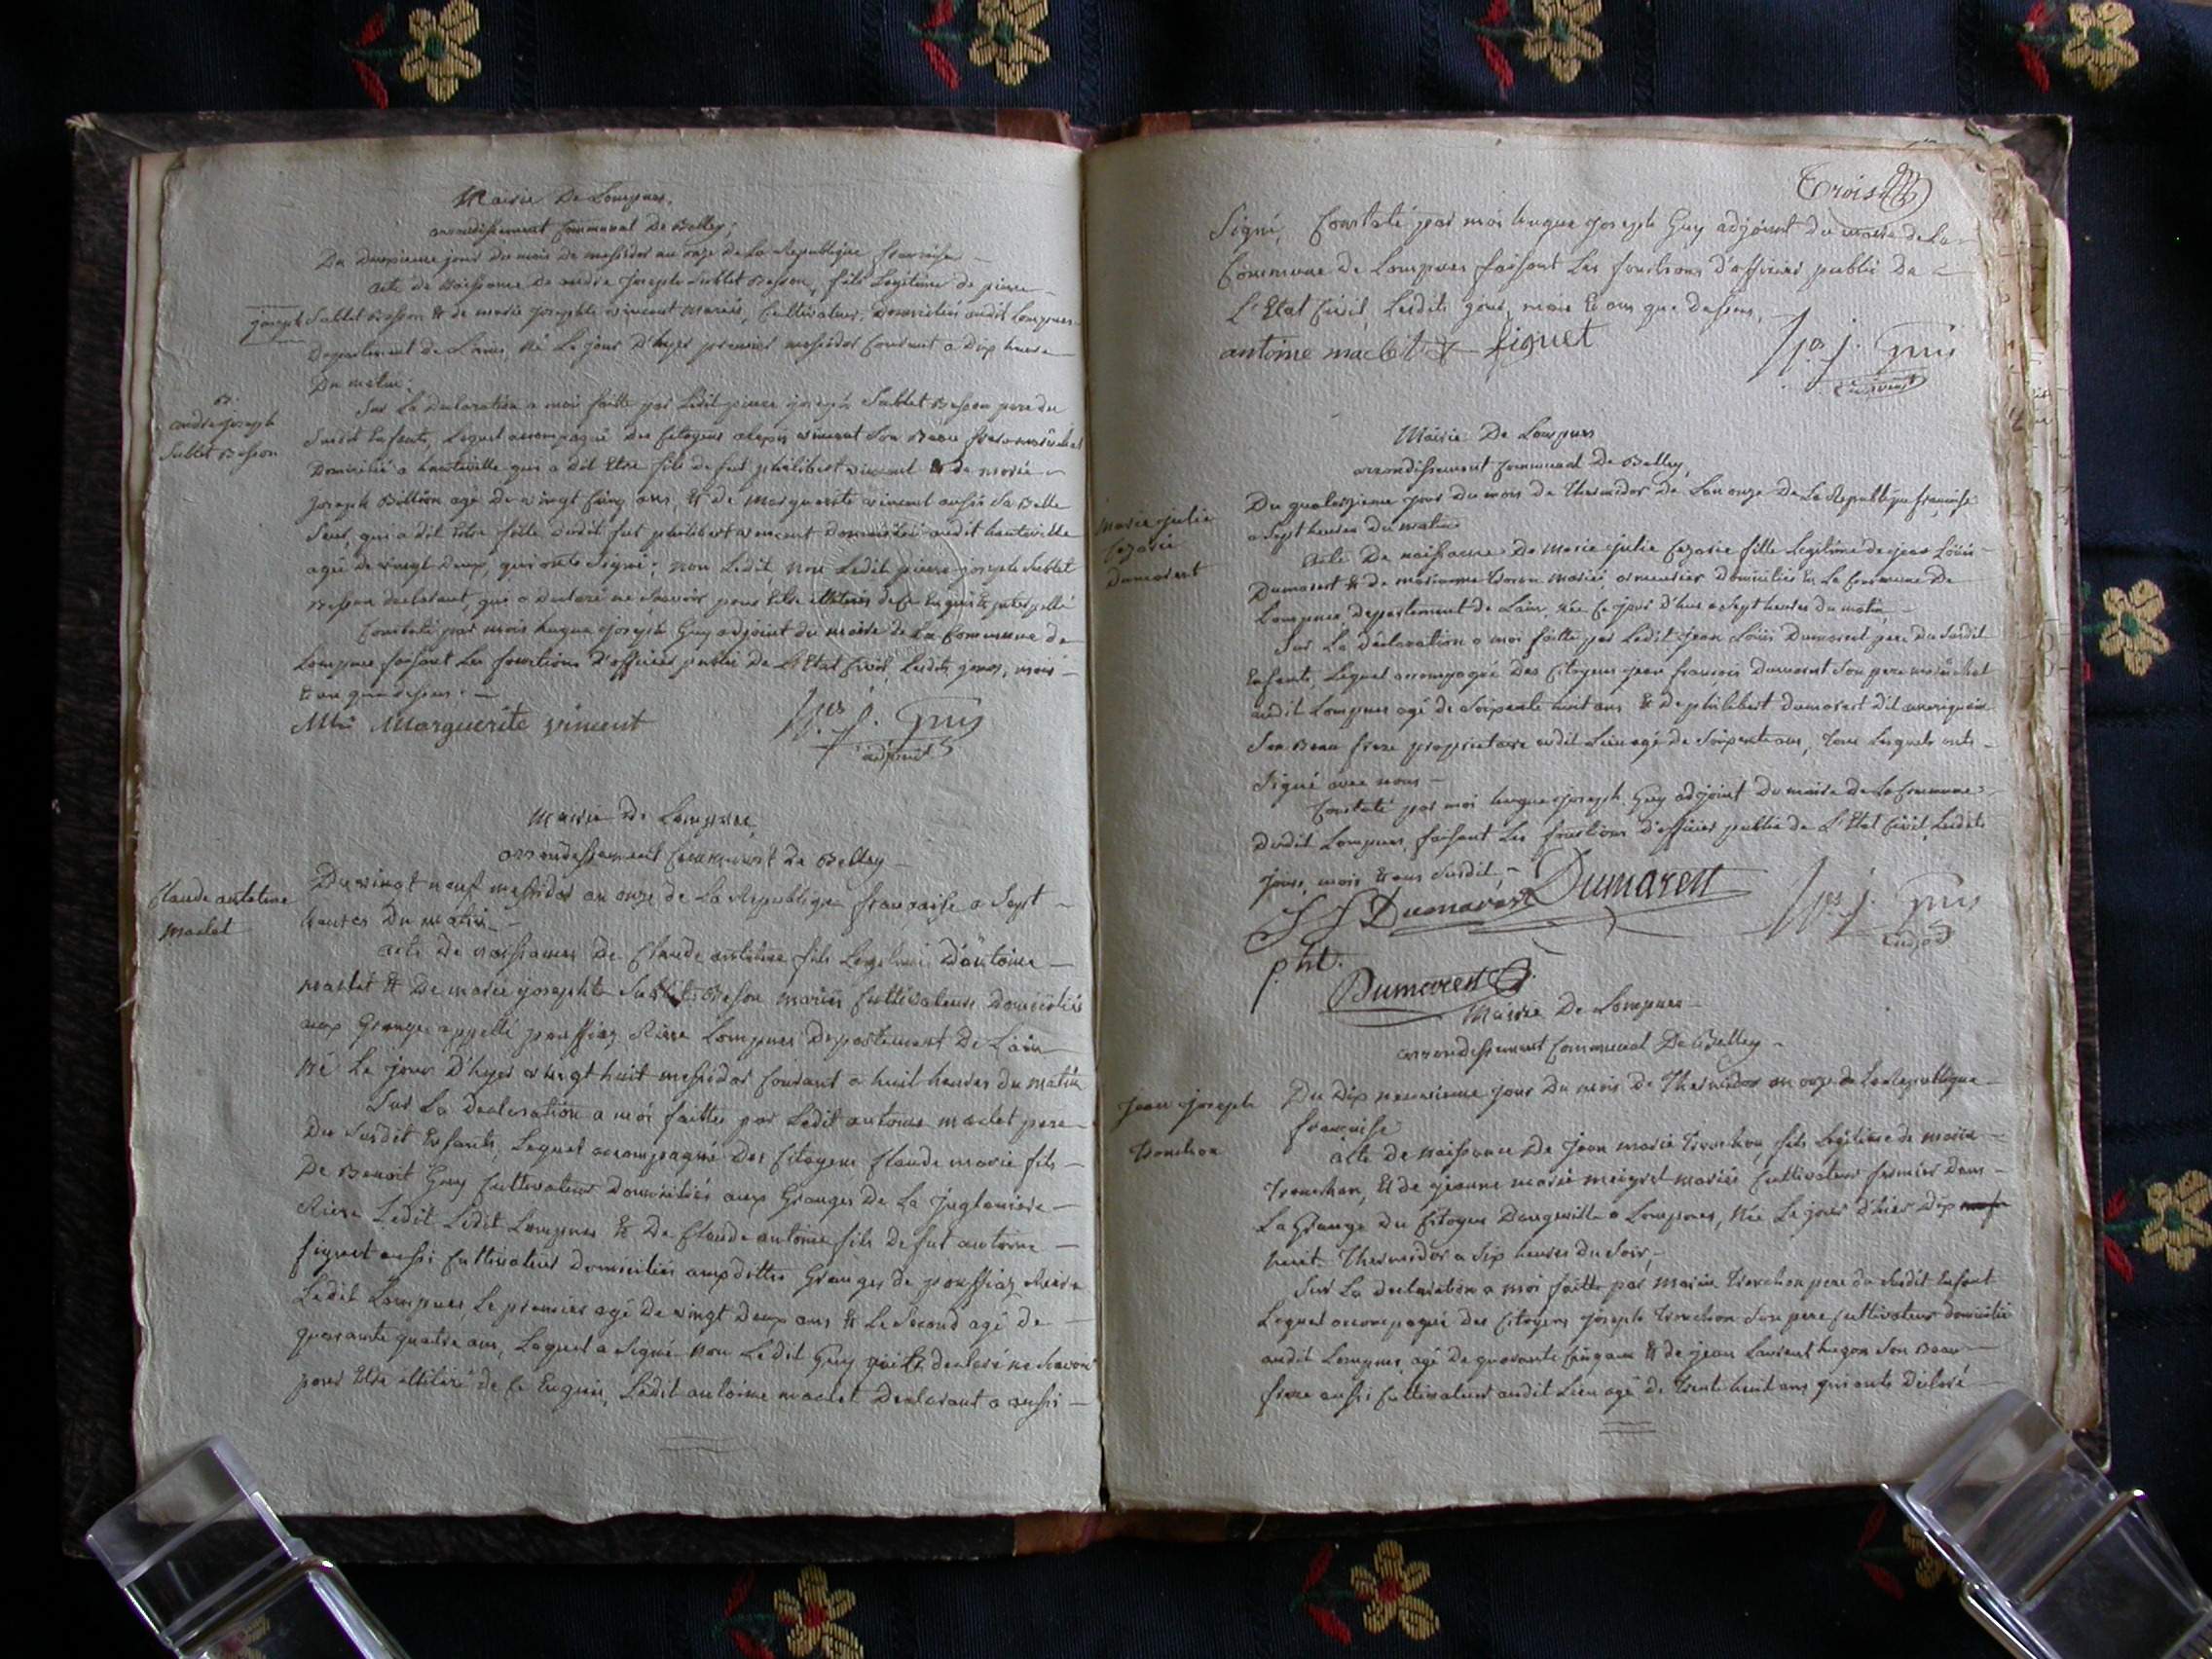 Mairie De Lompnes.
arrondissement Communal De Belley;
Du deuxieme jour du mois de messidor an onze de La Republique francaise
acte de Naissance De andre Joseph Sublet Besson, fils Legitime de pierre
joseph Sublet Besson & de marie josephte vincent mariés, Cultivateurs, Domiciliés audit Lompnes
Departement de L'ain, Né Le jour D'hyer premier messidor Courant a Dix heures
Du matin.
andre joseph
Sublet Besson
Sur La Declaration a moi faitte par Ledit pierre joseph Sublet Besson pere du
Susdit Enfants, Lequel accompagné Des Citoyens alexis vincent Son Beau frere
Domicilié a hauteville qui a dit Etre fils de fut philibert vincent & de marie
Joseph Billion agé De vingt Cinq ans, & de Marguerite vincent aussi Sa Belle
Seur, qui a dit Etre fille dudit fut philibert vincent Domiciliée audit hauteville
agée de vingt Deux, qui ont Signé; non Ledit, non Ledit pierre joseph Sublet
Besson declarant, qui a Declaré ne Scavoir pour Etre illiteré de Ce Enquis & interpellé
Constaté par mois hugue joseph Guy adjoint du maire de La Commune de
Lompnes faisant Les fonctions d'officier public De L'Etat Civil, Lesdits jours, mois
& an que dessus.
Marguerite vincent
j. Guy
adjoint
Mairie De Lompnes
arrondissement Communal De Belley
Claude antoine
Maclet
Du vingt neuf messidor an onze de La Republique francaise a Sept
heures Du matin
acte De naissance De Claude antoine fils Legitime D'antoine
Maclet & De marie josephte Sublet Besson mariés Cultivateurs Domiciliés
aux Granges appellé jouffiaz Riere Lompnes Departement De L'ain
Né Le jour D'hyer vingt huit messidor Courant a huit heures du matin
Sur La declaration a moi faitte par Ledit antoine maclet pere
Du Susdit Enfants, Lequel accompagné Des Citoyens Claude marie fils
De Benoit Guy Cultivateur Domiciliés aux Granges De La
Riere Ledit Ledit Lompnes & De Claude antoine fils de fut antoine
figuet aussi Cultivateur Domiciliés auxdittes Granges de jouffiaz Riere
Ledit Lompnes, Le premier agé De vingt Deux ans & Le Second agé de
quarante quatre ans, Lequel a Signé non Ledit Guy qui a declaré ne Scavoir
pour Etre illiteré de Ce Enquis, Ledit antoine maclet Declarant a aussi
Trois
Signé, Constaté par moi hugue joseph Guy adjoint du maire de La
Commune de Lompnes faisant Les fonctions d'officier public De
L'Etat Civil, Lesdits jour, mois & an que dessus.
antoine maclet figuet
j. Guy
Mairie De Lompnes
arrondissement Communal De Belley
Marie julie
Cezarie
Dumarest
Du quatorzieme jour Du mois de Thermidor De L'an onze De La Republique francaise
a Sept heures Du matin
acte De naissance De marie julie Cezarie fille Legitime de jean Louis
Dumarest & de marianne mariés Domiciliés En La Commune De
Lompnes Departement de L'ain, née Ce jour D'hui a Sept heures Du matin
Sur La declaration a moi faitte par Ledit jean Louis Dumarest pere du Susdit
Enfants, Lequel accompagné Des Citoyens jean francois Dumarest Son pere
audit Lompnes agé de Soixante huit ans & de philibert Dumarest dit
Son Beau frere proprietaire audit Lieu agé de Soixante ans, tous Lesquels onts
Signé avec nous
Constaté par moi hugue joseph Guy adjoint du maire de La Commune
Dudit Lompnes, faisant Les fonctions D'officier public de L'Etat Civil, Lesdits
jours, mois & ans Susdit
Dumarest Dumarest
j. Guy
adjoint
pht.
Dumarest
Mairie De Lompnes
arrondissement Communal De Belley
Jean joseph
Tronchon
Du Dix neuvieme jour Du mois de Thermidor an onze de La Republique
francaise
acte de naissance De Jean marie Tronchon, fils Legitime de marin
Tronchon, & de jeanne marie meigret mariés Cultivateur fermier Dans
La Grange Du Citoyen Dangeville a Lompnes, Née Le jour d'hier Dix
huit Thermidor a Six heures Du Soir,
Sur La declaration a moi faitte par marin Tronchon pere du Susdit Enfant
Lequel accompagné des Citoyens joseph Tronchon Son pere Cultivateur domicilié
audit Lompnes agé De quarante Cinq ans & de jean Laurent hugon Son Beau
frere aussi Cultivateur audit Lieu agé de Trente huit ans qui onts Déclaré